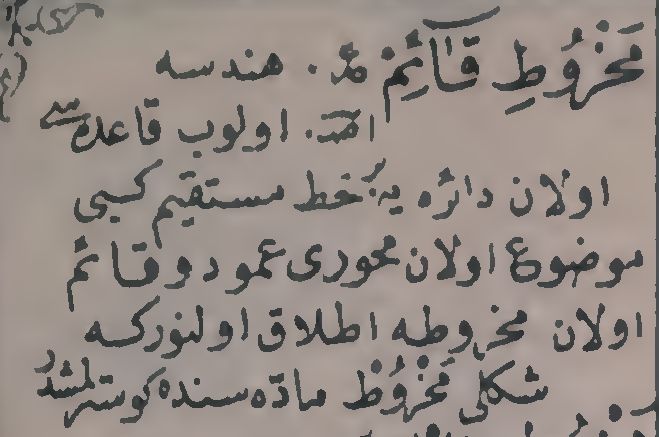 مَخْرُوُطِ قَائِمْ مذ. هندسه
اصـ. اولوب قاعده‌سی
اولان دائره یه بر خط مستقیم کبی
موضوع اولان محوری عمود و قائم
اولان مخروطه اطلاق اولنورکه
شکلی مَخْرُوُطْ مادّه سنده کوسترلمشدر